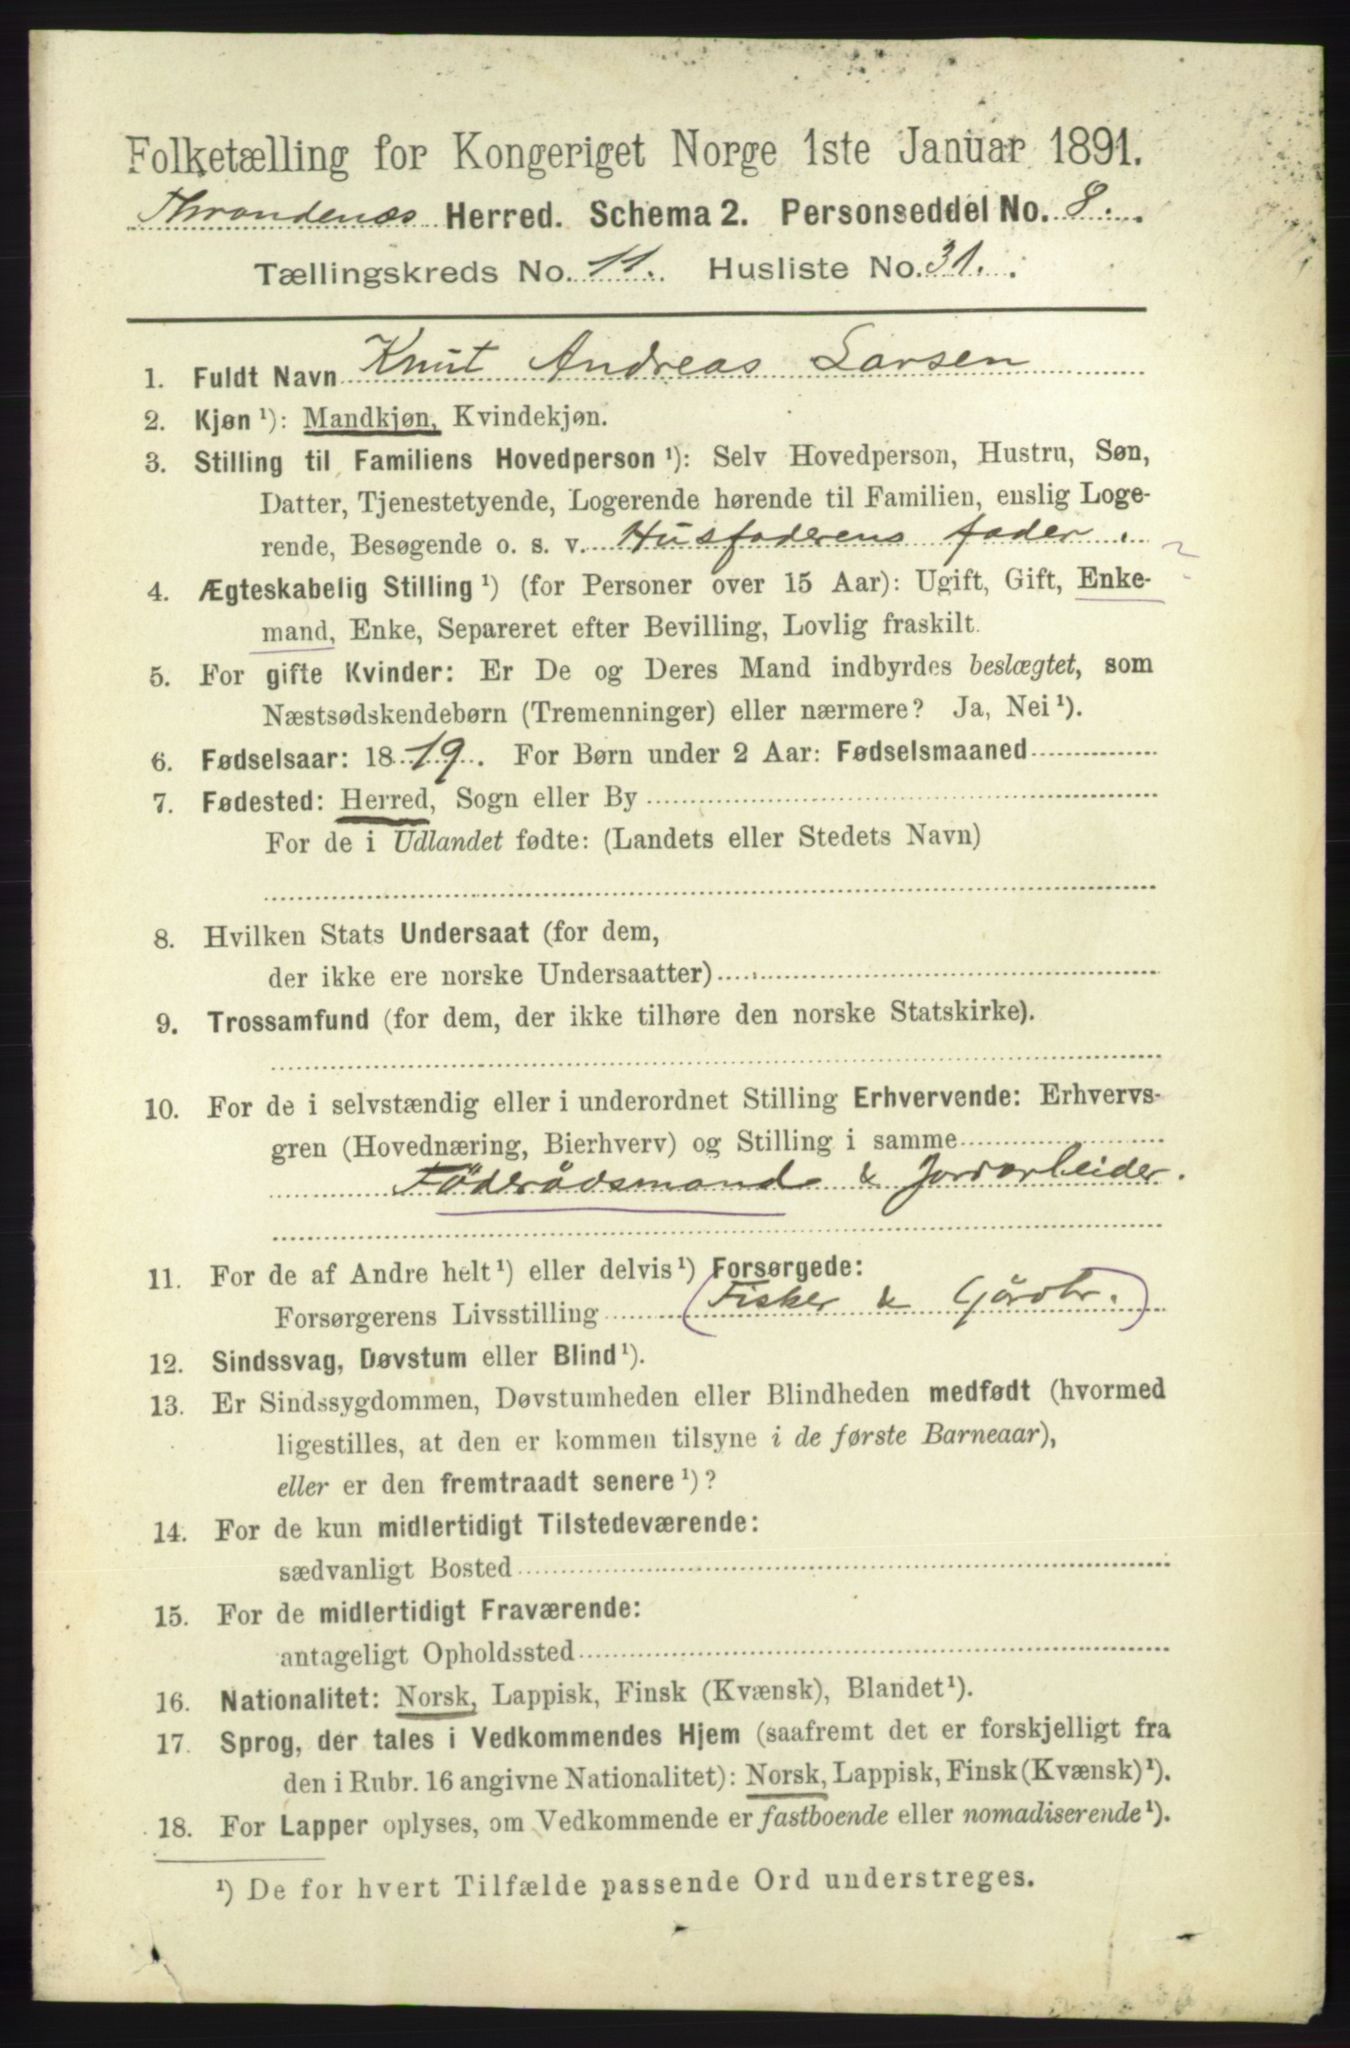 Folketælling for Kongeriget Norge 1ste Januar 1891.
Throndenæs Herred. Schema 2. Personseddel No. 8.
Tællingskreds No. 11. Husliste No. 31.
1. Fuldt Navn Knut Andreas Larsen
2. Kjøn ¹): Mandkjøn, Kvindekjøn.
3. Stilling til Familiens Hovedperson ¹): Selv Hovedperson, Hustru, Søn,
Datter, Tjenestetyende, Logerende hørende til Familien, enslig Loge-
rende, Besøgende o. s. v. Husfaderens fader. ?
4. Ægteskabelig Stilling ¹) (for Personer over 15 Aar): Ugift, Gift, Enke-
mand, Enke, Separeret efter Bevilling, Lovlig fraskilt.
5. For gifte Kvinder: Er De og Deres Mand indbyrdes beslægtet, som
Næstsødskendebørn (Tremenninger) eller nærmere? Ja, Nei ¹).
6. Fødselsaar: 1819. For Børn under 2 Aar: Fødselsmaaned
7. Fødested: Herred, Sogn eller By
For de i Udlandet fødte: (Landets eller Stedets Navn)
8. Hvilken Stats Undersaat (for dem,
der ikke ere norske Undersaatter)
9. Trossamfund (for dem, der ikke tilhøre den norske Statskirke).
10. For de i selvstændig eller i underordnet Stilling Erhvervende: Erhvervs-
gren (Hovednæring, Bierhverv) og Stilling i samme
Föderådsmand & Jordarbeider.
11. For de af Andre helt ¹) eller delvis ¹) Forsørgede:
Forsørgerens Livsstilling (Fisker & Gårdbr.)
12. Sindssvag, Døvstum eller Blind ¹).
13. Er Sindssygdommen, Døvstumheden eller Blindheden medfødt (hvormed
ligestilles, at den er kommen tilsyne i de første Barneaar),
eller er den fremtraadt senere ¹)?
14. For de kun midlertidigt Tilstedeværende:
sædvanligt Bosted
15. For de midlertidigt Fraværende:
antageligt Opholdssted
16. Nationalitet: Norsk, Lappisk, Finsk (Kvænsk), Blandet ¹).
17. Sprog, der tales i Vedkommendes Hjem (saafremt det er forskjelligt fra
den i Rubr. 16 angivne Nationalitet): Norsk, Lappisk, Finsk (Kvænsk) ¹).
18. For Lapper oplyses, om Vedkommende er fastboende eller nomadiserende ¹).
¹) De for hvert Tilfælde passende Ord understreges.